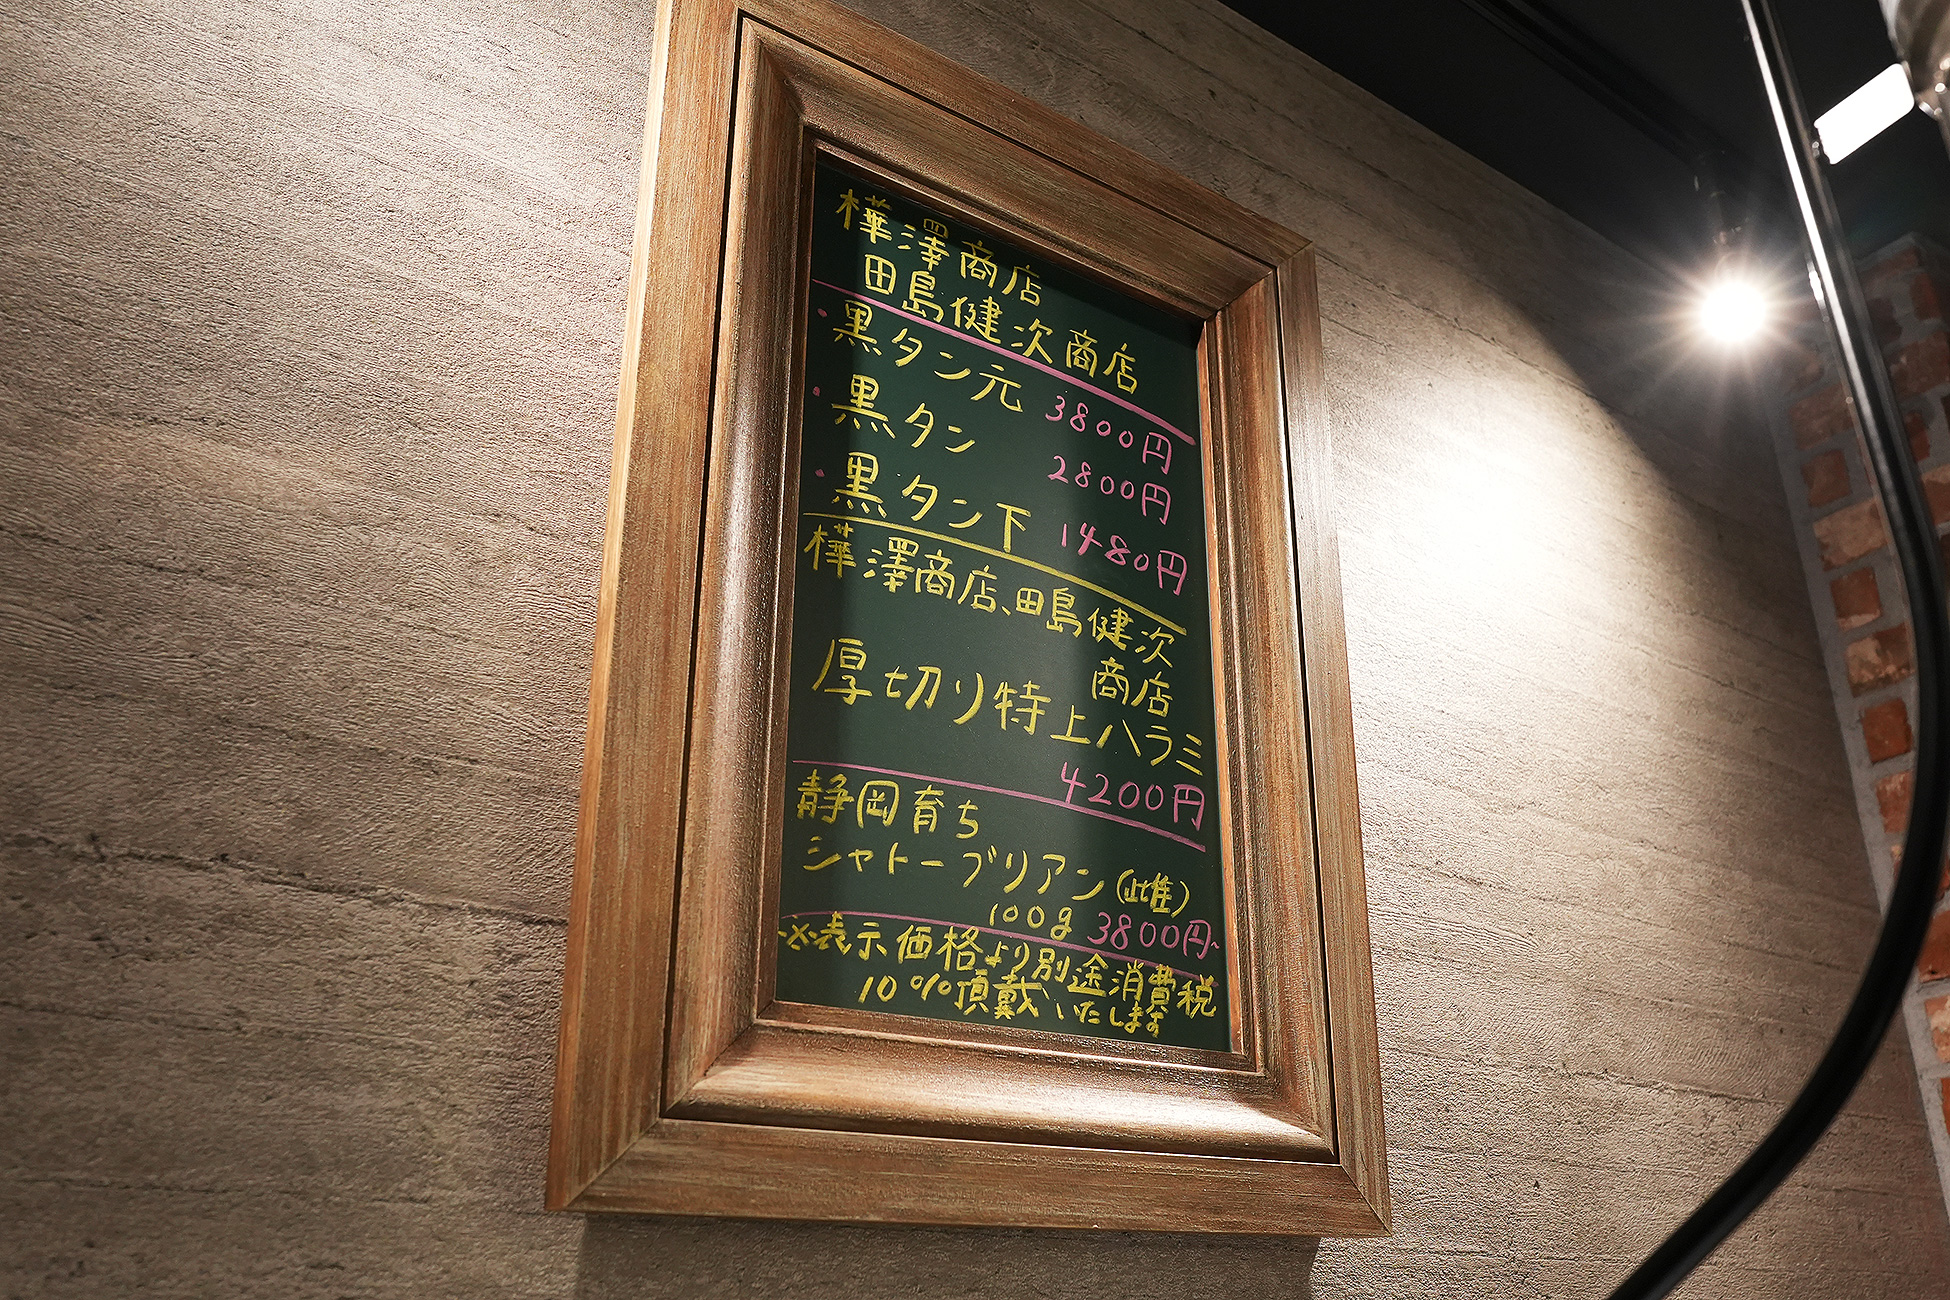 樺澤商店
田島健次商店
・黒タン元 3800円
・黒タン 2800円
・黒タン下 1480円
樺澤商店、田島健次
商店
厚切り特上ハラミ
4200円
静岡育ち
シャトーブリアン(雌)
100g 3800円~
※表示価格より別途消費税
10%頂戴いたします